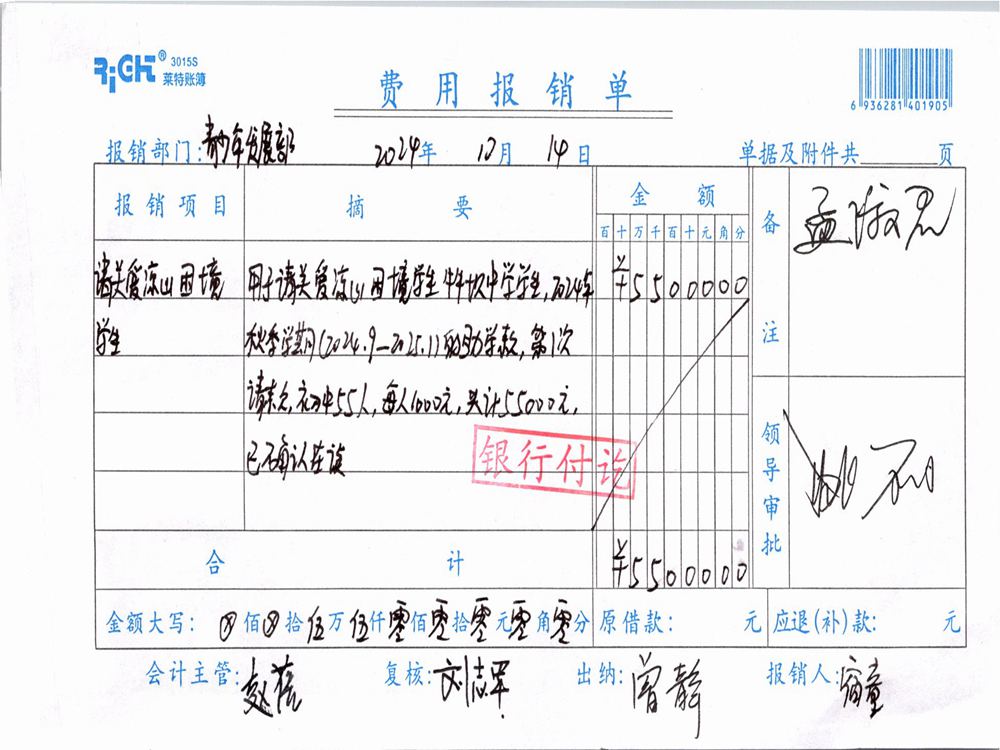 RiGHT® 3015S
莱特账簿
费用报销单
6 936281 401905
报销部门:青少年发展部 2024年 12月 14日 单据及附件共 页
报销项目 摘要 金额 备注
百十万千百十元角分
请关爱凉山困境 用于请关爱凉山困境学生牛牛坝中学学生,2024年 ¥5500000
学生 秋季学期(2024.9—2025.1)的助学款,第1次
请款,初中55人,每人1000元,共计55000元,
已确认在读
银行付讫
领导审批
合计 ¥5500000
金额大写: ⊗佰⊗拾伍万伍仟零佰零拾零元零角零分 原借款: 元 应退(补)款: 元
会计主管: 复核:刘志军 出纳:曾静 报销人:宿童